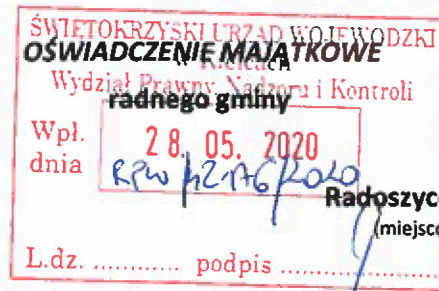 ŚWIĘTOKRZYSKI URZĄD WOJEWÓDZKI
OŚWIADCZENIE MAJĄTKOWE
w Kielcach
Wydział Prawny Nadzoru i Kontroli
radnego gminy
Wpł.
dnia
28. 05. 2020
Radoszyc
(miejsc
L.dz. ............ podpis ............